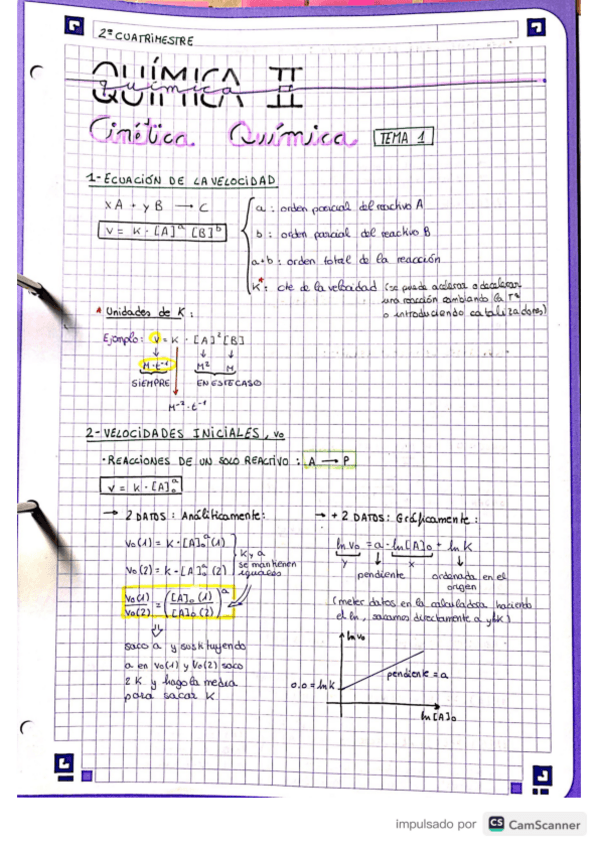 2º CUATRIMESTRE
QUÍMICA II
química
Cinética Química TEMA 1
1- ECUACIÓN DE LA VELOCIDAD
xA + yB → C
V = K · [A]ᵃ [B]ᵇ
a : orden parcial del reactivo A
b : orden parcial del reactivo B
a+b : orden total de la reacción
K* : cte de la velocidad (se puede acelerar o decelerar
una reacción cambiando la Tª
o introduciendo catalizadores)
* Unidades de K :
Ejemplo : V = K · [A]² [B]
M·t⁻¹ M² M
SIEMPRE EN ESTE CASO
M⁻²·t⁻¹
2- VELOCIDADES INICIALES, v₀
· REACCIONES DE UN SOLO REACTIVO : A → P
V = K · [A]₀ᵃ
→ 2 DATOS : Análiticamente:
V₀(1) = K · [A]₀ᵃ (1)
V₀(2) = K · [A]₀ᵃ (2)
K y a
se mantienen
iguales
V₀(1)/V₀(2) = ([A]₀ (1)/[A]₀ (2))ᵃ
⇓
saco a y sustituyendo
a en V₀(1) y V₀(2) saco
2 K y hago la media
para sacar K
→ + 2 DATOS : Gráficamente :
ln V₀ = a · ln[A]₀ + ln K
y x
pendiente ordenada en el
origen
(meter datos en la calculadora haciendo
el ln, sacamos directamente a y bK)
ln v₀
pendiente = a
0.0 = ln K
ln [A]₀
impulsado por CS CamScanner